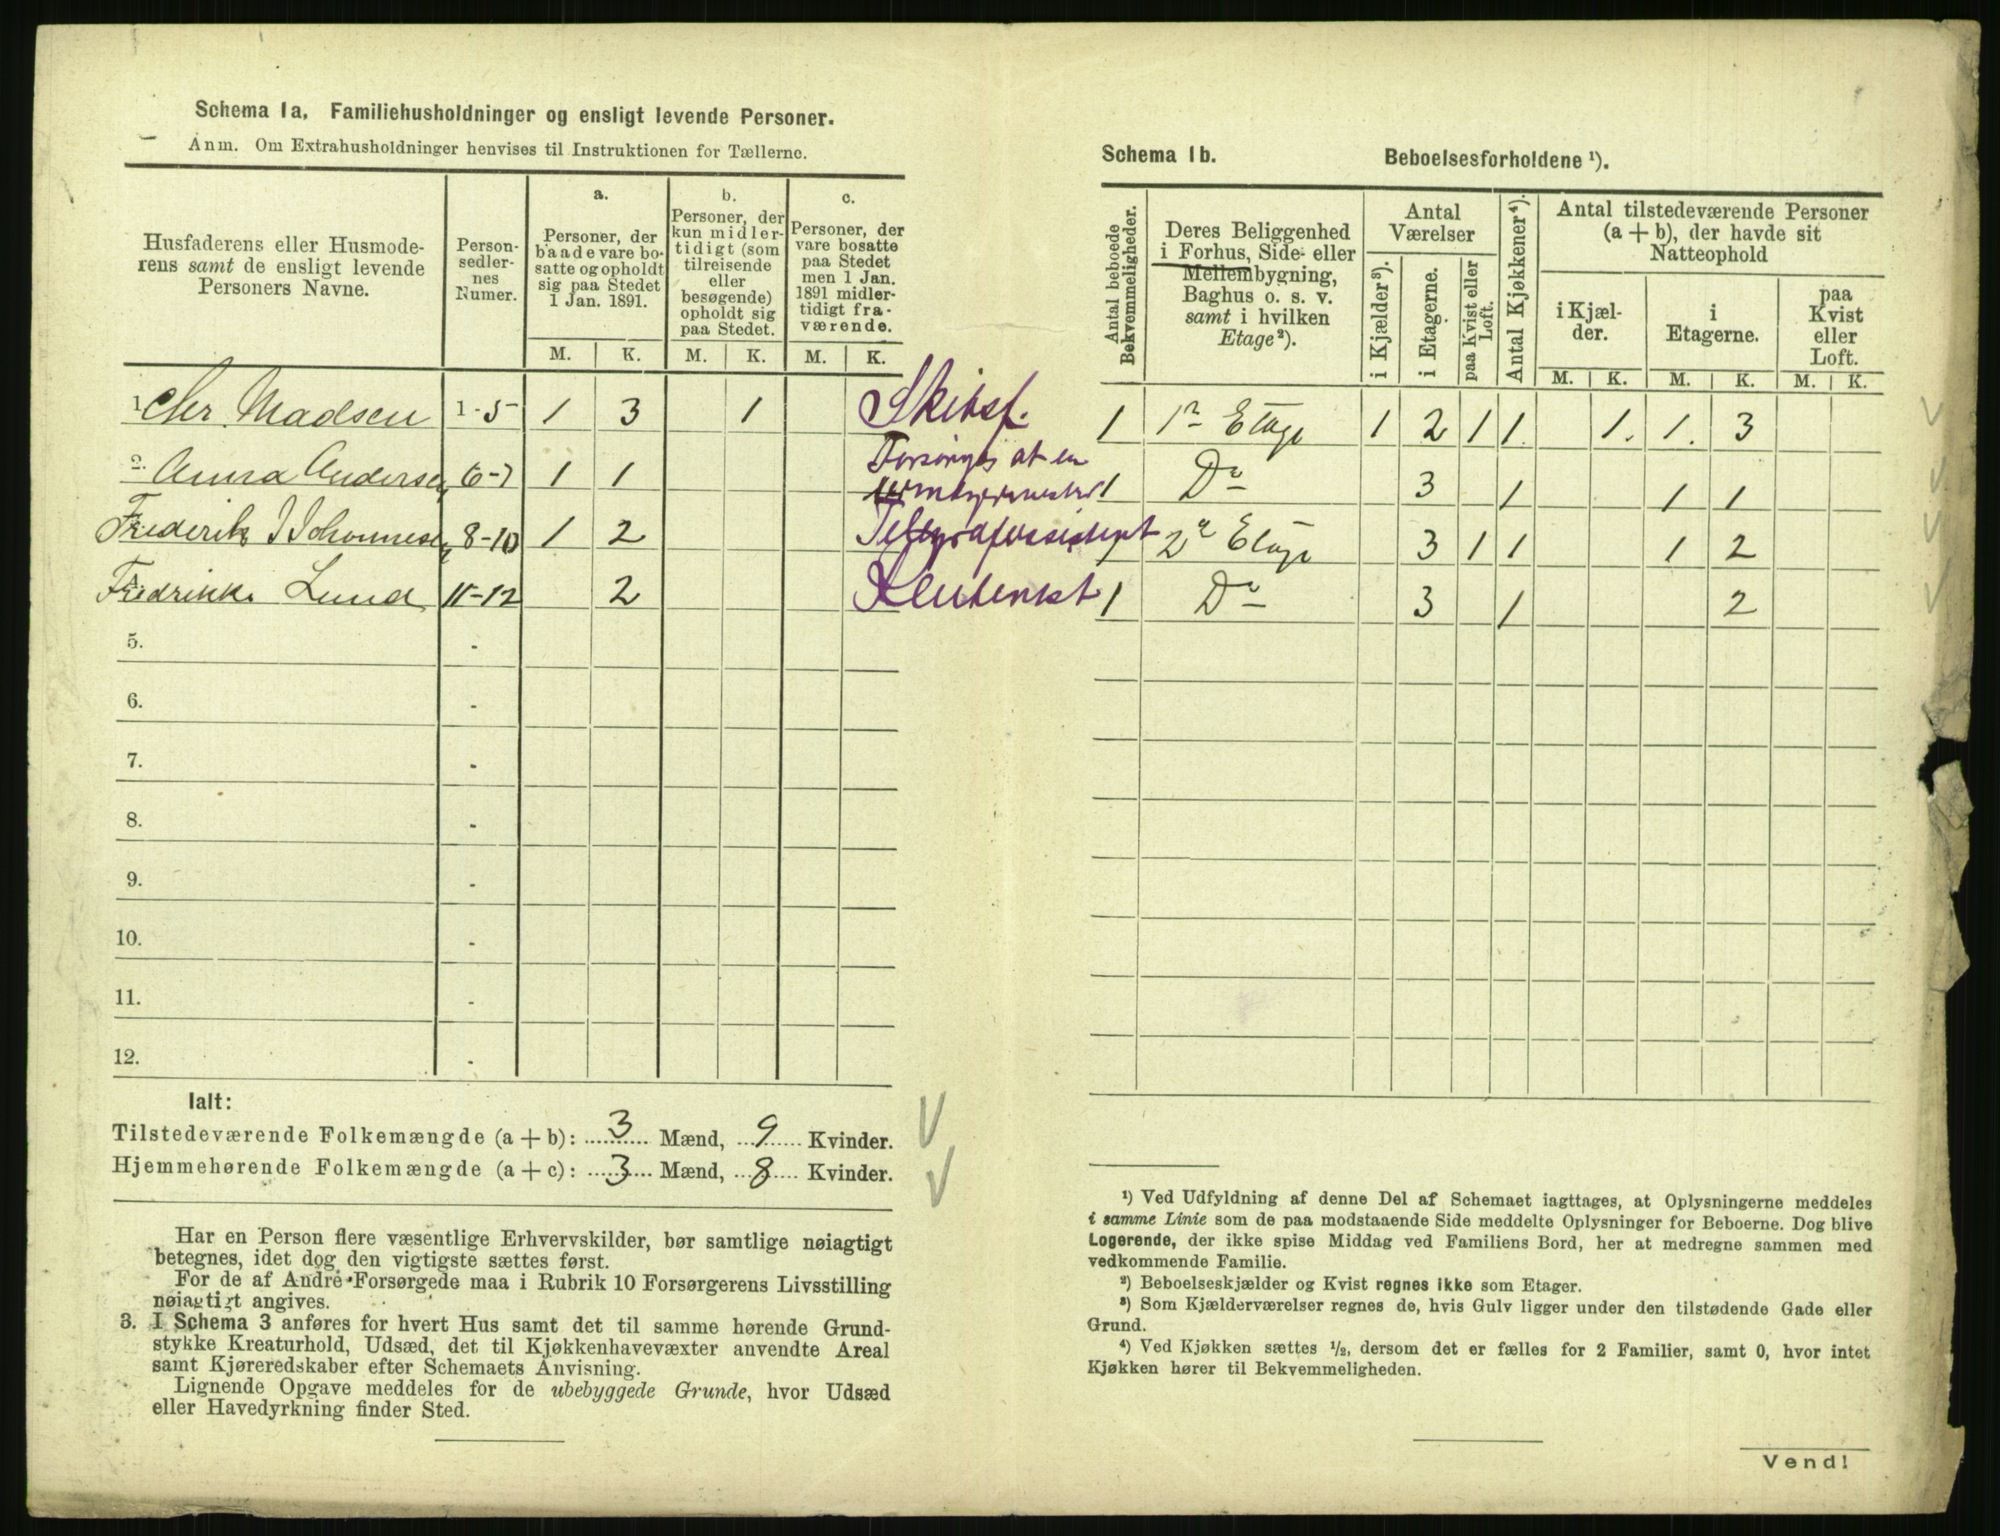 Schema 1a. Familiehusholdninger og ensligt levende Personer.
Anm. Om Extrahusholdninger henvises til Instruktionen for Tællerne.
Husfaderens eller Husmode-
rens samt de ensligt levende
Personers Navne.
Person-
sedler-
nes
Numer.
a.
Personer, der
baade vare bo-
satte og opholdt
sig paa Stedet
1 Jan. 1891.
b.
Personer, der
kun midler-
tidigt (som
tilreisende
eller
besøgende)
opholdt sig
paa Stedet.
c.
Personer, der
vare bosatte
paa Stedet
men 1 Jan.
1891 midler-
tidigt fra-
værende.
M. K. M. K. M. K.
1. Chr. Madsen 1-5 1 3 1 Skibsf.
2. Anna Andersen 6-7 1 1 Forsørges af en
Frederik J Johannesen 8-10 1 2 Telegrafassistent
Fredrikke Lund 11-12 2 Rentenist
5. -
6. -
7. -
8. -
9. -
10. -
11. -
12. -
Ialt:
Tilstedeværende Folkemængde (a + b): 3 Mænd, 9 Kvinder.
Hjemmehørende Folkemængde (a + c): 3 Mænd, 8 Kvinder.
Har en Person flere væsentlige Erhvervskilder, bør samtlige nøiagtigt
betegnes, idet dog den vigtigste sættes først.
For de af André Forsørgede maa i Rubrik 10 Forsørgerens Livsstilling
nøiagtigt angives.
3. I Schema 3 anføres for hvert Hus samt det til samme hørende Grund-
stykke Kreaturhold, Udsæd, det til Kjøkkenhavevæxter anvendte Areal
samt Kjøreredskaber efter Schemaets Anvisning.
Lignende Opgave meddeles for de ubebyggede Grunde, hvor Udsæd
eller Havedyrkning finder Sted.
Schema 1b. Beboelsesforholdene ¹).
Antal beboede
Bekvemmeligheder.
Deres Beliggenhed
i Forhus, Side- eller
Mellembygning,
Baghus o. s. v.
samt i hvilken
Etage²).
Antal
Værelser
i Kjælder³).
i Etagerne.
paa Kvist eller
Loft.
Antal Kjøkkener⁴).
Antal tilstedeværende Personer
(a + b), der havde sit
Natteophold
i Kjæl-
der.
i
Etagerne.
paa
Kvist
eller
Loft.
M. K. M. K. M. K.
1 1ste Etage 1 2 1 1. 1. 1. 3
1 Do 3 1 1 1
1 2den Etage 3 1 1 1 2
1 Do 3 1 2
¹) Ved Udfyldning af denne Del af Schemaet iagttages, at Oplysningerne meddeles
i samme Linie som de paa modstaaende Side meddelte Oplysninger for Beboerne. Dog blive
Logerende, der ikke spise Middag ved Familiens Bord, her at medregne sammen med
vedkommende Familie.
²) Beboelseskjælder og Kvist regnes ikke som Etager.
³) Som Kjælderværelser regnes de, hvis Gulv ligger under den tilstødende Gade eller
Grund.
⁴) Ved Kjøkken sættes ½, dersom det er fælles for 2 Familier, samt 0, hvor intet
Kjøkken hører til Bekvemmeligheden.
Vend!